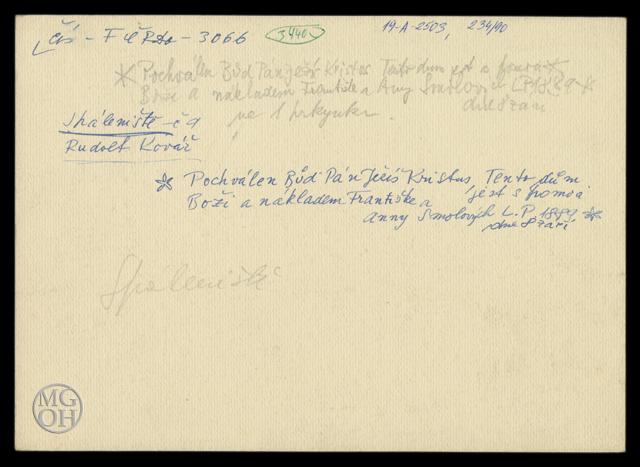 3440
19-A-2503, 234/90
- 3066
* Pochválen Bůd Pán Ježíš Kristus Tento dům jest s *
Boží a nákladem Františka a Anny Smolových LP 1889 *
dne 8 září
na 1 prkynku.
Spáleniště - č 9
Rudolf Kovář
* Pochválen Bůď Pán Ježíš Kristus, Tento dům
jest s pomocí
Boží a nákladem Františka a
Anny Smolových L.P. 1889 *
dne 8 září
Spáleniště
MG
OH